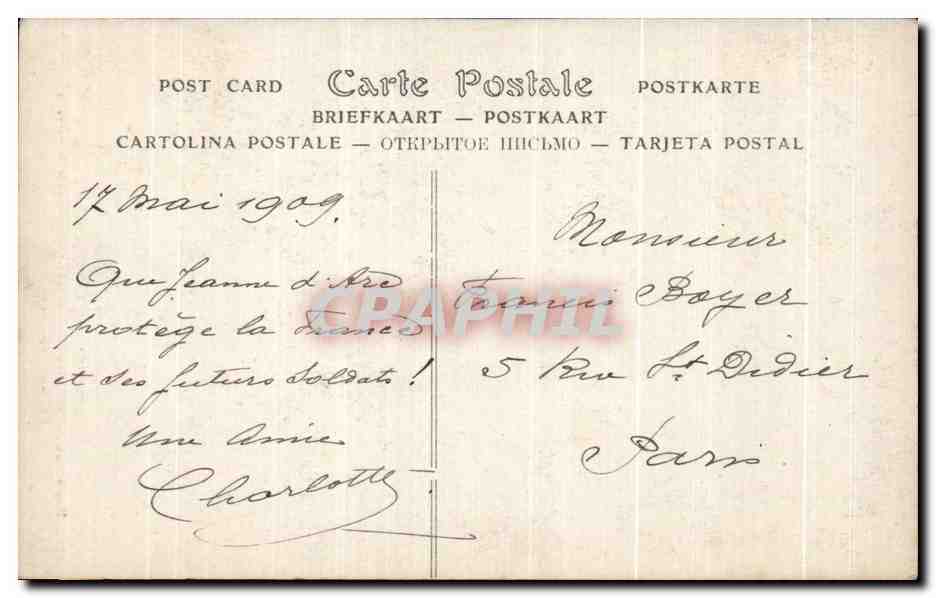 POST CARD Carte Postale POSTKARTE
BRIEFKAART — POSTKAART
CARTOLINA POSTALE — ОТКРЫТОЕ ПИСЬМО — TARJETA POSTAL
17 Mai 1909.
Que Jeanne d'Arc
protège la France
et ses futurs soldats !
Une Amie
Charlotte.
Monsieur
Francis Boyer
5 Rue St. Didier
Paris.
CPAPHIL